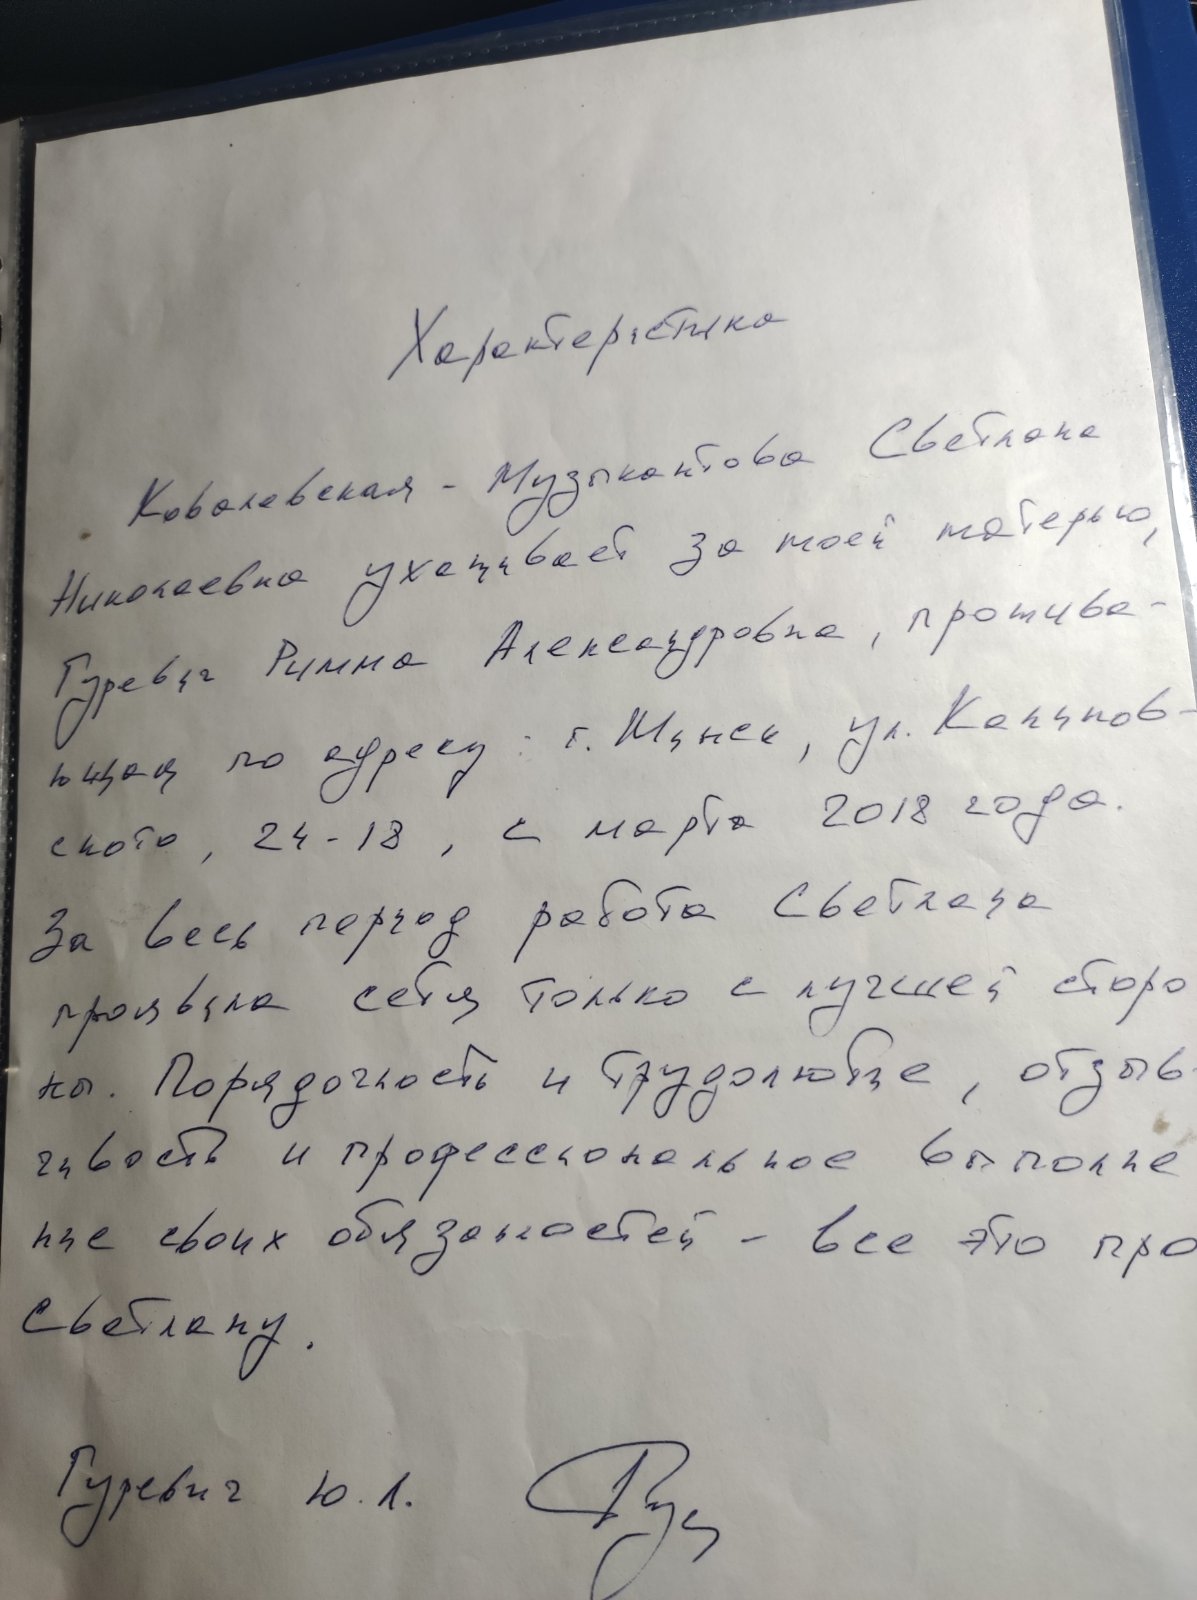 Характеристика
Ковалевская - Музыкантова Светлана
Николаевна ухаживает за моей матерью,
Гуревич Римма Александровна, прожива-
ющая по адресу: г. Минск, ул. Калинов-
ского, 24-18, с марта 2018 года.
За весь период работа Светлана
проявила себя только с лучшей сторо
ны. Порядочность и трудолюбие, отзыв-
чивость и профессиональное выполне
ние своих обязанностей - все это про
Светлану.
Гуревич Ю.Л.